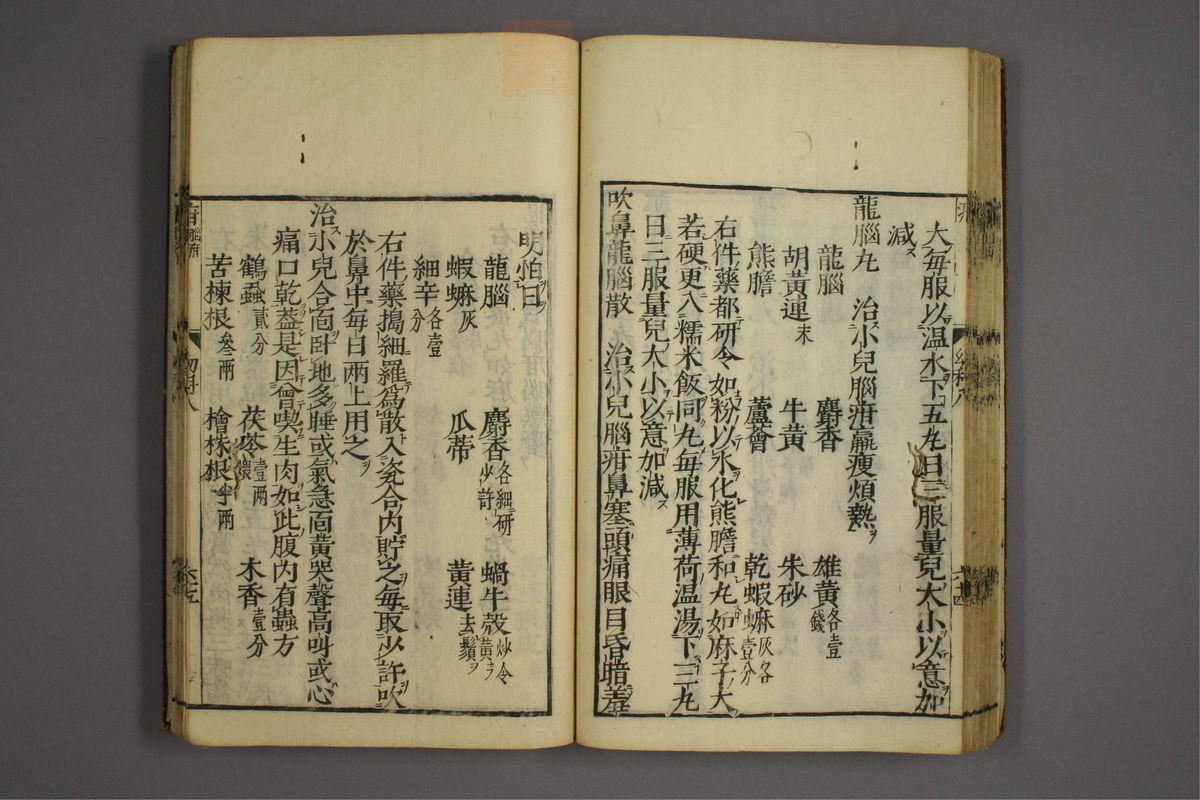 大每服以温水下五丸日三服量兒大小以意如
減ス
龍腦丸 治小兒腦疳羸瘦煩熱
龍腦 麝香 雄黄各壹錢
胡黄連末 牛黄 朱砂
熊膽 蘆薈 乾蝦蟆灰各壹分
右件藥都研令如粉以水化熊膽和丸如麻子大
若硬更入糯米飯同丸每服用薄荷温湯下三丸
日三服量兒大小以意加減ス
吹鼻龍腦散 治小兒腦疳鼻塞頭痛眼目昏暗羞
明怕日
龍腦 麝香各細研少許 蝸牛殻炒令黄
蝦蟆灰 瓜蒂 黄連去鬚
細辛各壹分
右件藥搗細羅爲散入瓷合内貯之每取少許吹
於鼻中每日兩上用之
治小兒合面卧地多睡或氣急面黄哭聲高叫或心
痛口乾葢是因曾喫生肉如此腹内有蟲方
鶴蝨貳分 茯苓壹兩 木香壹分
苦楝根叁兩 檜株根半兩
幼科八
六十五